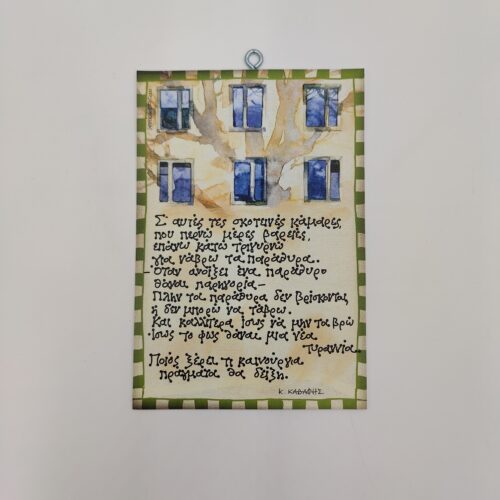 Σ' αυτές τες σκοτεινές κάμαρες,
που περνώ μέρες βαρειές,
επάνω κάτω τριγυρνώ
για νάβρω τα παράθυρα.
– Όταν ανοίξει ένα παράθυρο
θάναι παρηγορία –
Πλην τα παράθυρα δεν βρίσκονται,
ή δεν μπορώ να τάβρω.
Και καλλίτερα ίσως να μην τα βρώ
Ίσως το φως θάναι μια νέα
τυραννία..
Ποιός ξέρει τι καινούργια
πράγματα θα δείξη.
Κ. ΚΑΒΑΦΗΣ